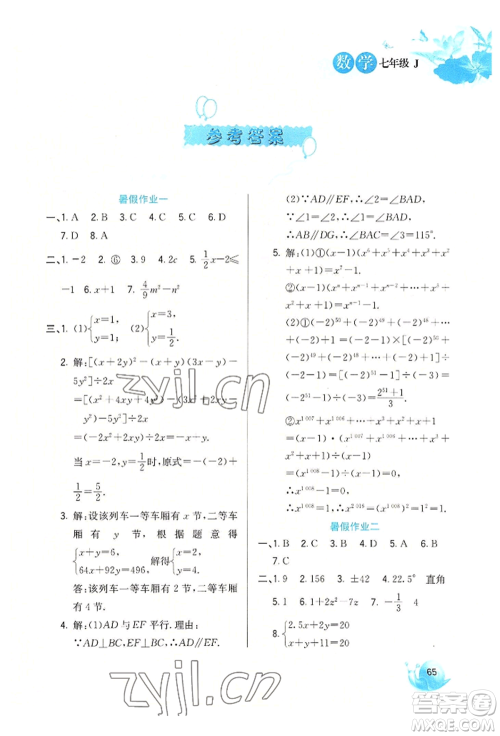 数学 七年级 J
参考答案
暑假作业一
一、1. A 2. B 3. C 4. D 5. B 6. C
7. D 8. A
二、1. -2 2. ⑥ 3. 9 4. 2c 5. -2≤
-1 6. x+1 7. 4/9 m²-n²
三、1. (1){x=1, y=1. (2){x=3, y=1/2.
2. 解:[(x+2y)²-(x+y)(3x-y)-
5y²]÷2x
=(x²+4xy+4y²-3x²-2xy+
y²-5y²)÷2x
=(-2x²+2xy)÷2x=-x+y.
当x=-2,y=1/2时,原式=-(-2)+
1/2=5/2.
3. 解:设该列车一等车厢有x节,二等
车厢有y节,根据题意得
{x+y=6, 64x+92y=496,解得{x=2, y=4.
答:该列车一等车厢有2节,二等车厢
有4节.
4. 解:(1)AD与EF平行.理由:
∵AD⊥BC,EF⊥BC,∴AD∥EF.
(2)∵AD∥EF,∴∠2=∠BAD.
∵∠1=∠2,∴∠1=∠BAD,
∴AB∥DG,∴∠BAC=∠3=115°.
5. 解:(1)①(x-1)(x⁶+x⁵+x⁴+x³+x²
+x+1)=x⁷-1.
②(x-1)(xⁿ+xⁿ⁻¹+xⁿ⁻²+…+x³+
x²+x+1)=xⁿ⁺¹-1.
(2)①(-2)⁵⁰+(-2)⁴⁹+(-2)⁴⁸+…+
(-2)+1=(-2-1)[(-2)⁵⁰+(-2)⁴⁹+
(-2)⁴⁸+…+(-2)+1]÷(-2-1)=
[(-2)⁵¹-1]÷(-3)=(2⁵¹+1)/3.
②(x-1)(x¹⁰⁰⁷+x¹⁰⁰⁶+…+x³+x²+x
+1)=x¹⁰⁰⁸-1=0.
∴x¹⁰⁰⁸=1.
∴x²⁰¹⁶=(x¹⁰⁰⁸)²=1.
暑假作业二
一、1. B 2. C 3. D 4. B 5. A 6. B
7. C
二、1. 9 2. 156 3. ±42 4. 22.5° 直角
5. 1 6. 2x²-7x 7. -1/3 4
8. {2.5x+2y=60 x+y=20
65
zyjl.cn
zyjl.cn
答案圈
MXQE.COM